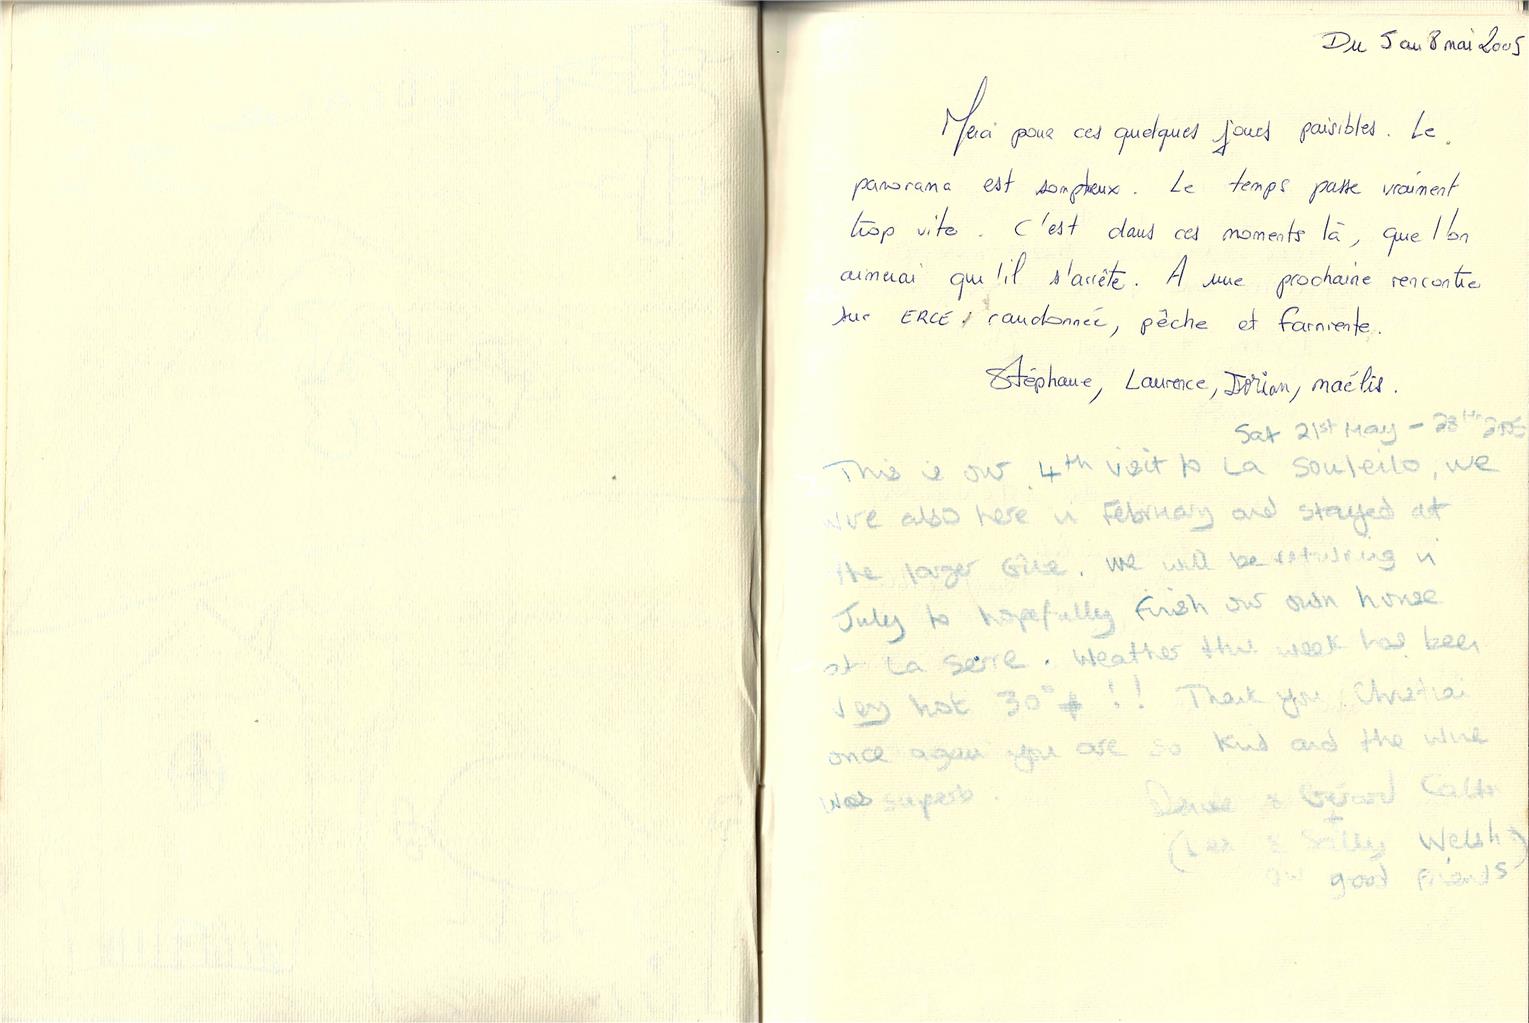 Du 5 au 8 mai 2005
Merci pour ces quelques jours paisibles. Le
panorama est somptueux. Le temps passe vraiment
trop vite. C'est dans ces moments là, que l'on
aimerai qu'il s'arrête. A une prochaine rencontre
sur ERCE : randonnée, pêche et farniente.
Stéphane, Laurence, Dorian, maélis.
Sat 21st May - 28th 2005
This is our 4th visit to La Souleilo, we
were also here in February and stayed at
the larger Gîte. We will be returning in
July to hopefully finish our own house
at La Serre. Weather this week has been
very hot 30° !! Thank you
once again you are so kind and the wine
was superb. Denise & Gerard
+
( & Sally Welsh)
our good friends